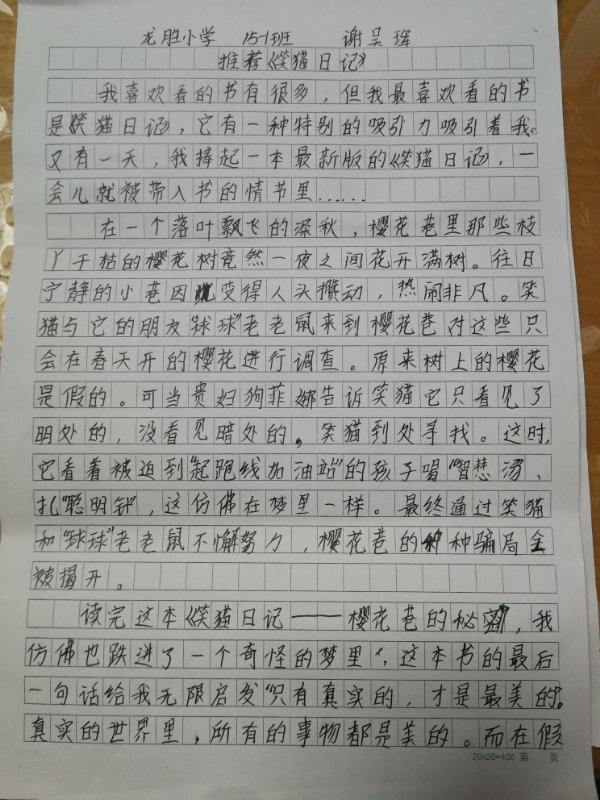 龙胜小学 151班 谢吴珲
推荐《笑猫日记》
我喜欢看的书有很多，但我最喜欢看的书
是《笑猫日记》，它有一种特别的吸引力吸引着我。
又有一天，我捧起一本最新版的《笑猫日记》，一
会儿就被带入书的情节里……
在一个落叶飘飞的深秋，樱花巷里那些枝
丫干枯的樱花树竟然一夜之间花开满树。往日
宁静的小巷因变得人头攒动，热闹非凡。笑
猫与它的朋友“球球”老老鼠来到樱花巷对这些只
会在春天开的樱花进行调查。原来树上的樱花
是假的。可当贵妇狗菲娜告诉笑猫它只看见了
明处的，没看见暗处的。笑猫到处寻找。这时，
它看着被迫到“起跑线加油站”的孩子喝“智慧汤、
扎“聪明针”，这仿佛在梦里一样。最终通过笑猫
和“球球”老老鼠不懈努力，樱花巷的种种骗局全
被揭开。
读完这本《笑猫日记——樱花巷的秘密》，我
仿佛也跌进了一个奇怪的梦里，这本书的最后
一句话给我无限启发“只有真实的，才是最美的”。
真实的世界里，所有的事物都是美的。而在假
20×20=400 第 页